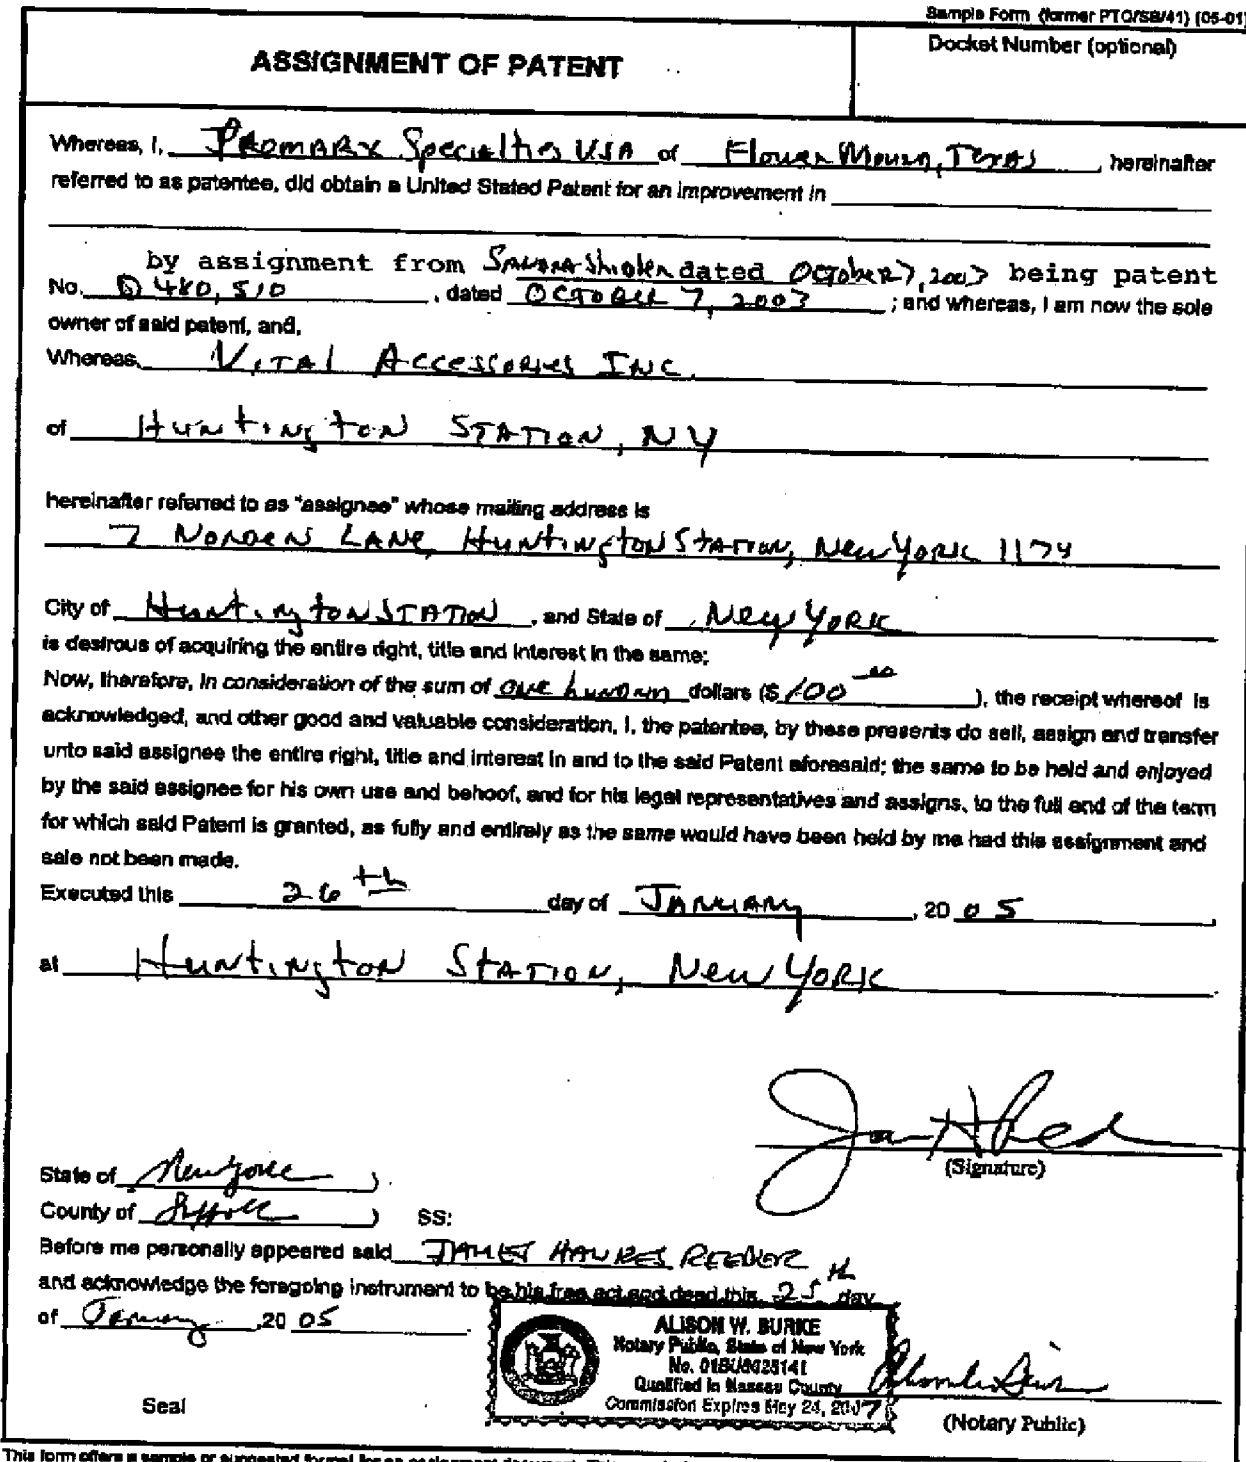 Sample Form (former PTO/SB/41) (05-01)
ASSIGNMENT OF PATENT
Docket Number (optional)
Whereas, I, Promarx Specialties USA of Flower Mound, Texas, hereinafter
referred to as patentee, did obtain a United Stated Patent for an improvement in
by assignment from Shioler dated October 7, 2003 being patent
No. D 480,510, dated October 7, 2003; and whereas, I am now the sole
owner of said patent, and,
Whereas, Vital Accessories Inc.
of Huntington Station, NY
hereinafter referred to as "assignee" whose mailing address is
7 Norden Lane, Huntington Station, New York 1174
City of Huntington Station, and State of New York
is desirous of acquiring the entire right, title and interest in the same;
Now, therefore, in consideration of the sum of one hundred dollars ($ 100 00), the receipt whereof is
acknowledged, and other good and valuable consideration, I, the patentee, by these presents do sell, assign and transfer
unto said assignee the entire right, title and interest in and to the said Patent aforesaid; the same to be held and enjoyed
by the said assignee for his own use and behoof, and for his legal representatives and assigns, to the full end of the term
for which said Patent is granted, as fully and entirely as the same would have been held by me had this assignment and
sale not been made.
Executed this 26th day of January, 20 05
at Huntington Station, New York
(Signature)
State of New York )
County of Suffolk ) SS:
Before me personally appeared said James Reeder
and acknowledge the foregoing instrument to be his free act and deed this 25th day
of January, 20 05
ALISON W. BURKE
Notary Public, State of New York
No. 01BU6025141
Qualified in Nassau County
Commission Expires May 24, 2007
Seal
(Notary Public)
This form offers a sample or suggested format for an assignment document.